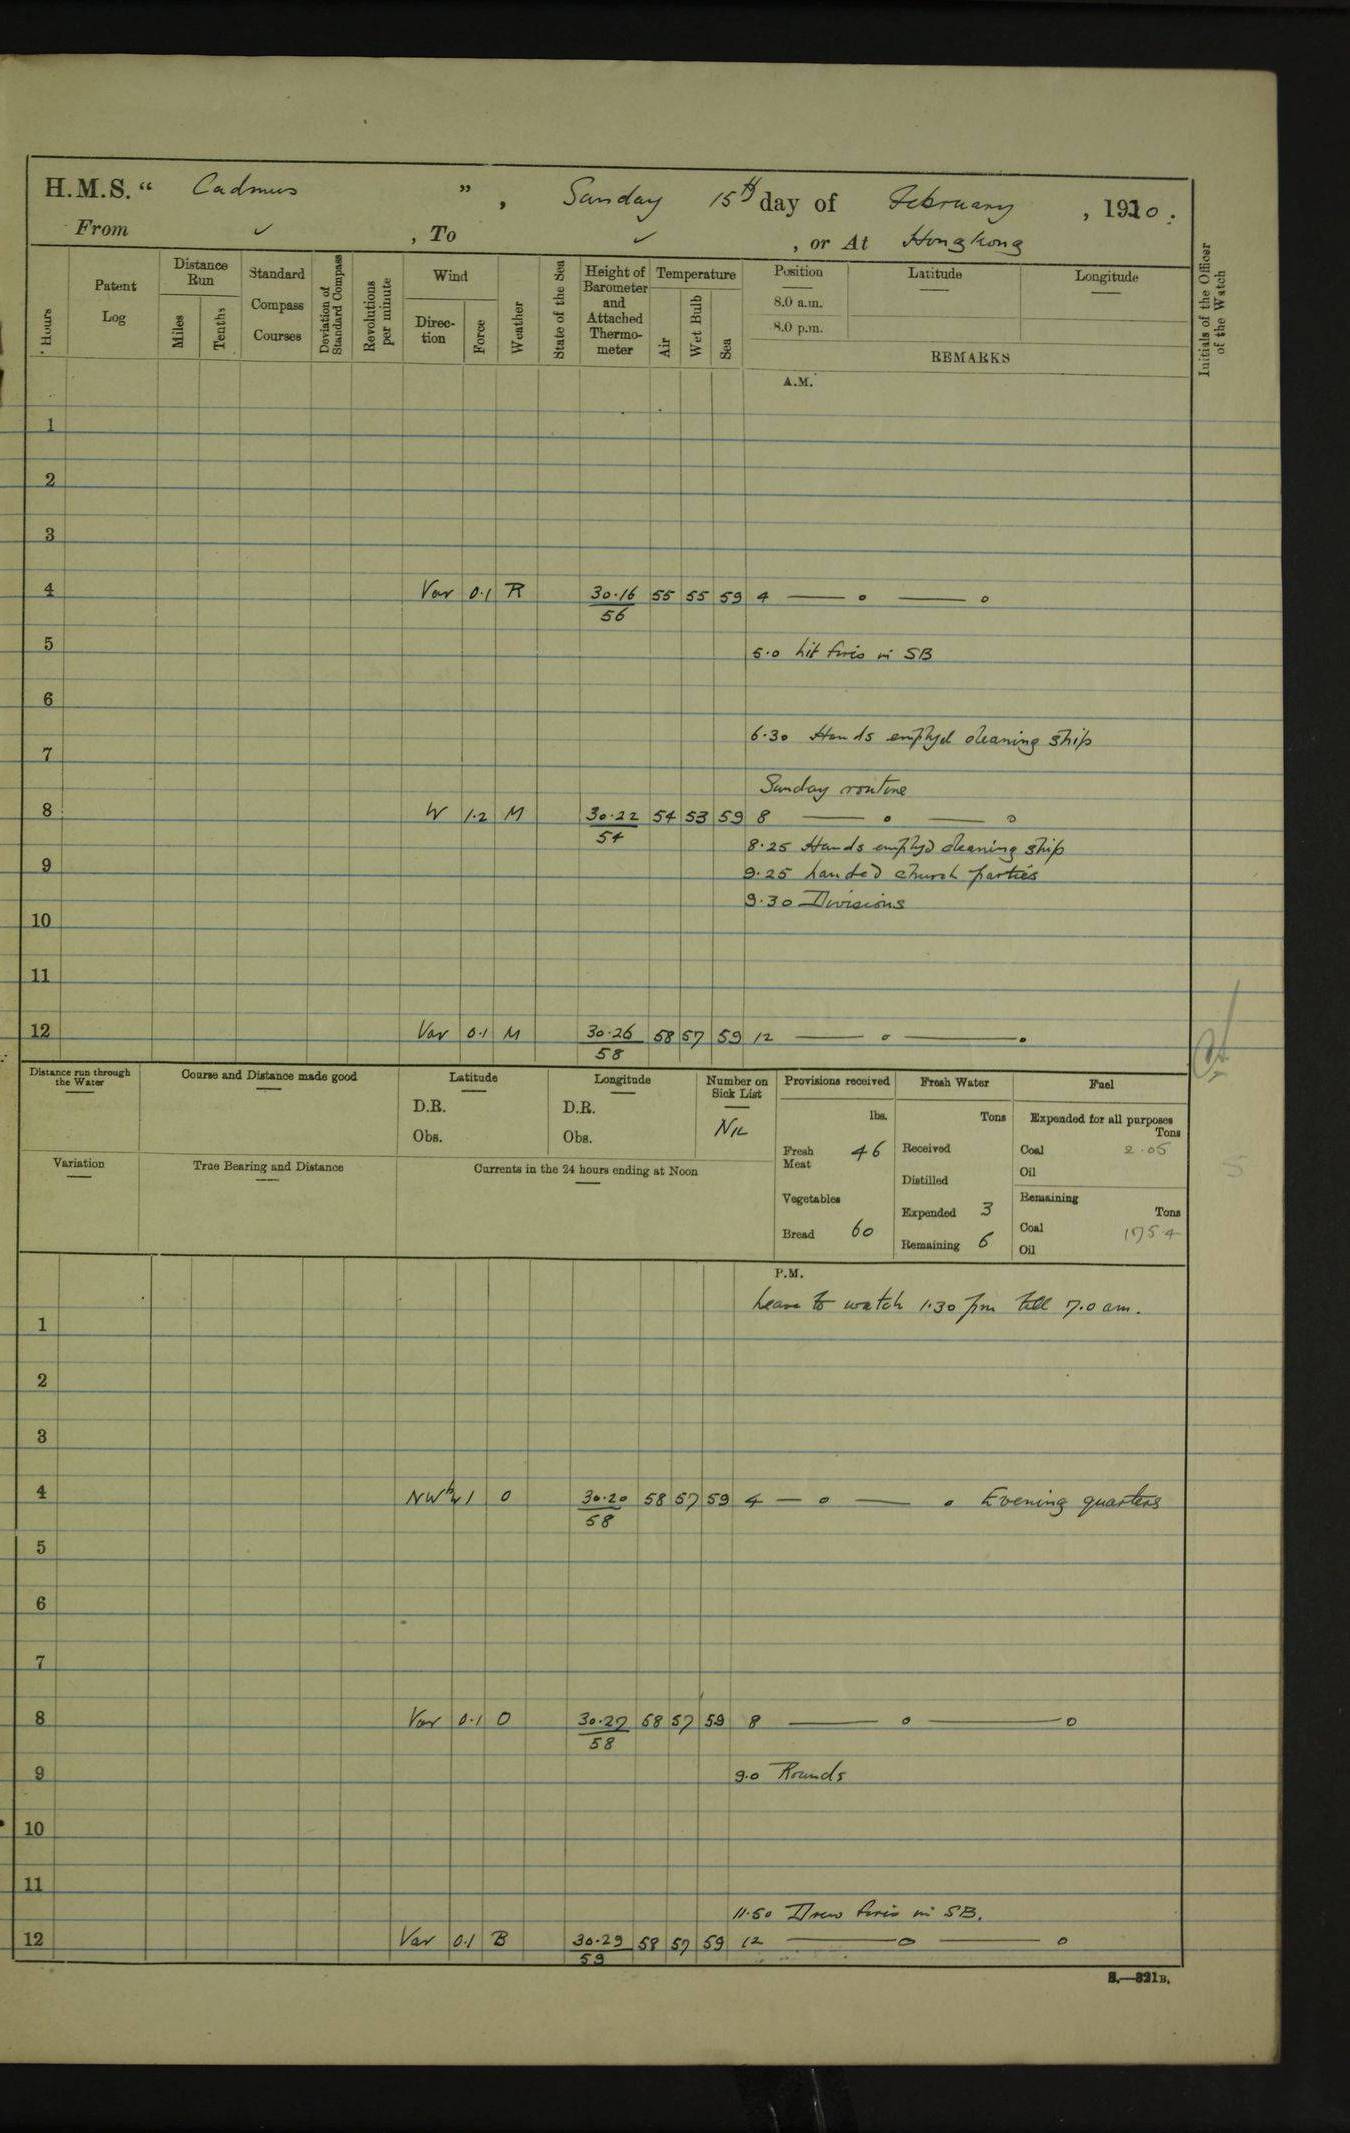 H.M.S. " Cadmus ", Sunday 15th day of February, 1920.
From ✓, To ✓, or At Hong Kong
Hours
Patent Log
Distance Run
Miles
Tenths
Standard Compass Courses
Deviation of Standard Compass
Revolutions per minute
Wind
Direc-tion
Force
Weather
State of the Sea
Height of Barometer and Attached Thermo-meter
Temperature
Air
Wet Bulb
Sea
Position
8.0 a.m.
8.0 p.m.
Latitude
Longitude
REMARKS
Initials of the Officer of the Watch
A.M.
1
2
3
4 Var 0.1 R 30.16 55 55 59 4 — o — o
56
5 5.0 Lit fires in SB
6
6.30 Hands employd cleaning ship
7
Sunday routine
8 W 1.2 M 30.22 54 53 59 8 — o — o
54
8.25 Hands employd cleaning ship
9 9.25 Landed church parties
9.30 Divisions
10
11
12 Var 0.1 M 30.26 58 57 59 12 — o — o
58
Distance run through the Water
Course and Distance made good
Latitude
D.R.
Obs.
Longitude
D.R.
Obs.
Number on Sick List
NIL
Provisions received
lbs.
Fresh Meat 46
Vegetables
Bread 60
Fresh Water
Tons
Received
Distilled
Expended 3
Remaining 6
Fuel
Expended for all purposes
Tons
Coal 2.05
Oil
Remaining
Tons
Coal 175.4
Oil
Variation
True Bearing and Distance
Currents in the 24 hours ending at Noon
5
P.M.
Leave to watch 1.30 pm till 7.0 am.
1
2
3
4 NWbyW 1 O 30.20 58 57 59 4 — o — o Evening quarters
58
5
6
7
8 Var 0.1 O 30.27 58 57 59 8 — o — o
58
9 9.0 Rounds
10
11
11.50 Drew fires in SB.
12 Var 0.1 B 30.29 58 57 59 12 — o — o
59
S.—321B.